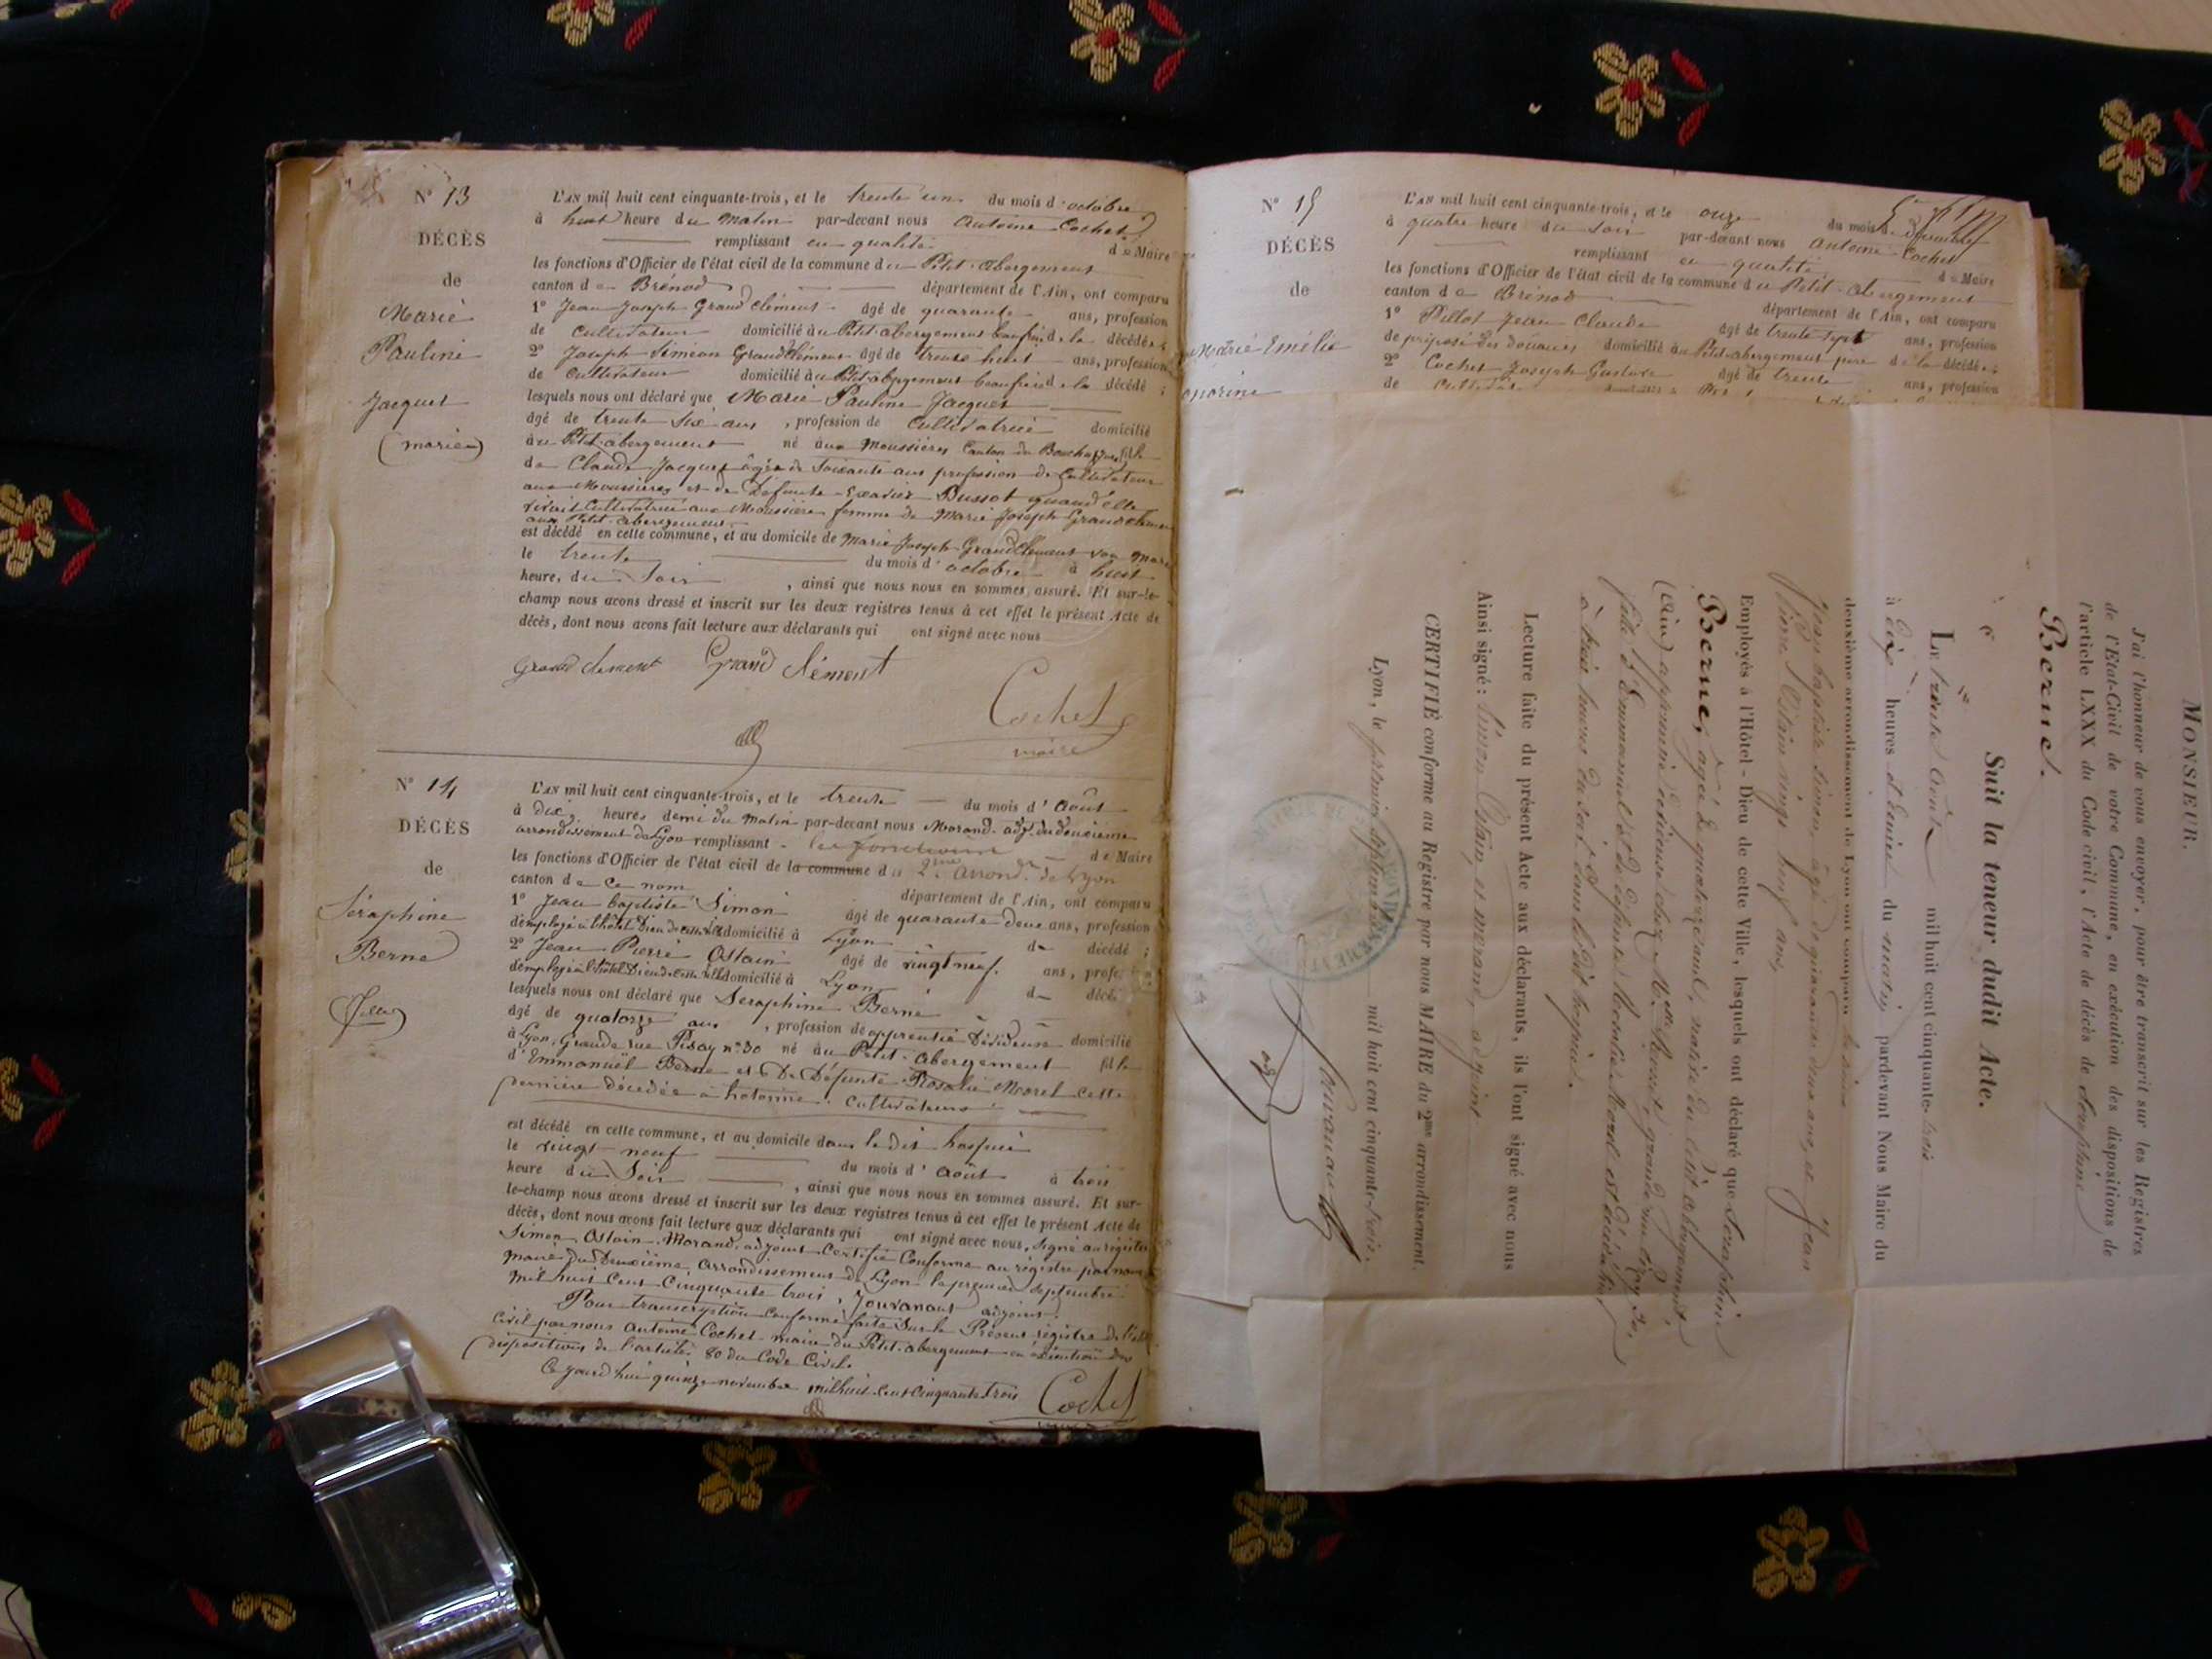 N° 13
DÉCÈS
de
Marie
Pauline
Jacquet
(mariée)
L'AN mil huit cent cinquante-trois, et le trente un du mois d'octobre
à huit heure du matin par-devant nous Antoine Cochet
remplissant en qualité de Maire
les fonctions d'Officier de l'état civil de la commune du Petit-abergement
canton de Brénod département de l'Ain, ont comparu
1° Jean Joseph Grand Clément âgé de quarante ans, profession
de Cultivateur domicilié au Petit abergement beaufrère de la décédée ;
2° Joseph Siméon Grandclément âgé de trente huit ans, profession
de Cultivateur domicilié au Petit abergement beaufrère de la décédé ;
lesquels nous ont déclaré que Marie Pauline Jacquet
âgé de trente six ans , profession de Cultivatrice domicilié
au Petit abergement né aux Moussières Canton de Bouchoux fille
de Claude Jacquet âgée de soixante ans profession de Cultivateur
aux Moussières et de Défunte Bussot quand elle
vivait Cultivatrice aux Moussières femme de Marie Joseph Grandclément
aux Petit abergement
est décédé en cette commune, et au domicile de Marie Joseph Grandclément son mari
le trente du mois d'octobre à huit
heure, du Soir , ainsi que nous nous en sommes assuré. Et sur-le-
champ nous avons dressé et inscrit sur les deux registres tenus à cet effet le présent Acte de
décès, dont nous avons fait lecture aux déclarants qui ont signé avec nous
Grand clement Grand Clément
Cochet
maire
N° 14
DÉCÈS
de
Séraphine
Berne
(fille)
L'AN mil huit cent cinquante-trois, et le trente du mois d'Août
à dix heures demi du matin par-devant nous Morand adjt du deuxième
arrondissement de Lyon remplissant les fonctions de Maire
les fonctions d'Officier de l'état civil de la commune du 2me arrond. de Lyon
canton de ce nom département de l'Ain, ont comparu
1° Jean baptiste Simon âgé de quarante deux ans, profession
d'employé à l'hôtel Dieu de cette ville domicilié à Lyon d décédé ;
2° Jean Pierre Ostain âgé de vingt neuf ans, profes
d'employé à l'hôtel Dieu de cette ville domicilié à Lyon d décé
lesquels nous ont déclaré que Seraphine Berne
âgé de quatorze ans , profession de apprentie Dévideuse domicilié
à Lyon, Grande rue Pisay n° 30 né au Petit-abergement fille
d'Emmanuël Berne et De Défunte Rosalie Morel cette
dernière décédée à hotonne Cultivateurs
est décédé en cette commune, et au domicile dans le dit hospice
le vingt neuf du mois d'Août à trois
heure du Soir , ainsi que nous nous en sommes assuré. Et sur-
le-champ nous avons dressé et inscrit sur les deux registres tenus à cet effet le présent Acte de
décès, dont nous avons fait lecture aux déclarants qui ont signé avec nous, signé au registre
Simon Ostain Morand, adjoint Certifié Conforme au registre par nous
maire du Deuxième arrondissement de Lyon le premier septembre
mil huit Cent Cinquante trois, Jouvanaut adjoint.
Pour transcription conforme faite sur le Présent registre de l'état
Civil par nous Antoine Cochet maire du Petit-abergement en exécution des
dispositions de l'article 80 du Code Civil.
Ce jourd'hui quinze novembre mil huit Cent Cinquante trois
Cochet
N° 15
DÉCÈS
de
Marie Emélie
L'AN mil huit cent cinquante-trois, et le onze du mois de
à quatre heure du Soir par-devant nous Antoine Cochet
remplissant en qualité de Maire
les fonctions d'Officier de l'état civil de la commune du Petit-abergement
canton de Brénod département de l'Ain, ont comparu
1° Pillot Jean Claude âgé de trente sept ans, profession
de préposé des douanes domicilié au Petit-abergement père de la décédée ;
2° Cochet Joseph Gustave âgé de trente ans, profession
de
MONSIEUR.
J'ai l'honneur de vous envoyer, pour être transcrit sur les Registres
de l'Etat-Civil de votre Commune, en exécution des dispositions de
l'article LXXX du Code civil, l'Acte de décès de Séraphine
Berne.
Suit la teneur dudit Acte.
LE trente Août mil huit cent cinquante-trois
à dix heures et demie du matin pardevant Nous Maire du
deuxième arrondissement de Lyon ont comparu les sieurs
Jean baptiste Simon, âgé de quarante deux ans, et Jean
Pierre Ostain vingt neuf ans,
Employés à l'Hôtel-Dieu de cette Ville, lesquels ont déclaré que Séraphine
Berne, âgée de quatorze ans, native du petit abergement,
(Ain) apprentie dévideuse chez Mlle grande rue Pizay 30,
fille d'Emmanuel et de défunte Rosalie Morel est décédée hier
à trois heures du soir dans le dit hospice.
Lecture faite du présent Acte aux déclarants, ils l'ont signé avec nous
Ainsi signé : Simon Ostain, et morand, adjoint
CERTIFIÉ conforme au Registre par nous MAIRE du 2me arrondissement.
Lyon, le premier septembre mil huit cent cinquante-trois.
Jouvanaut
adj